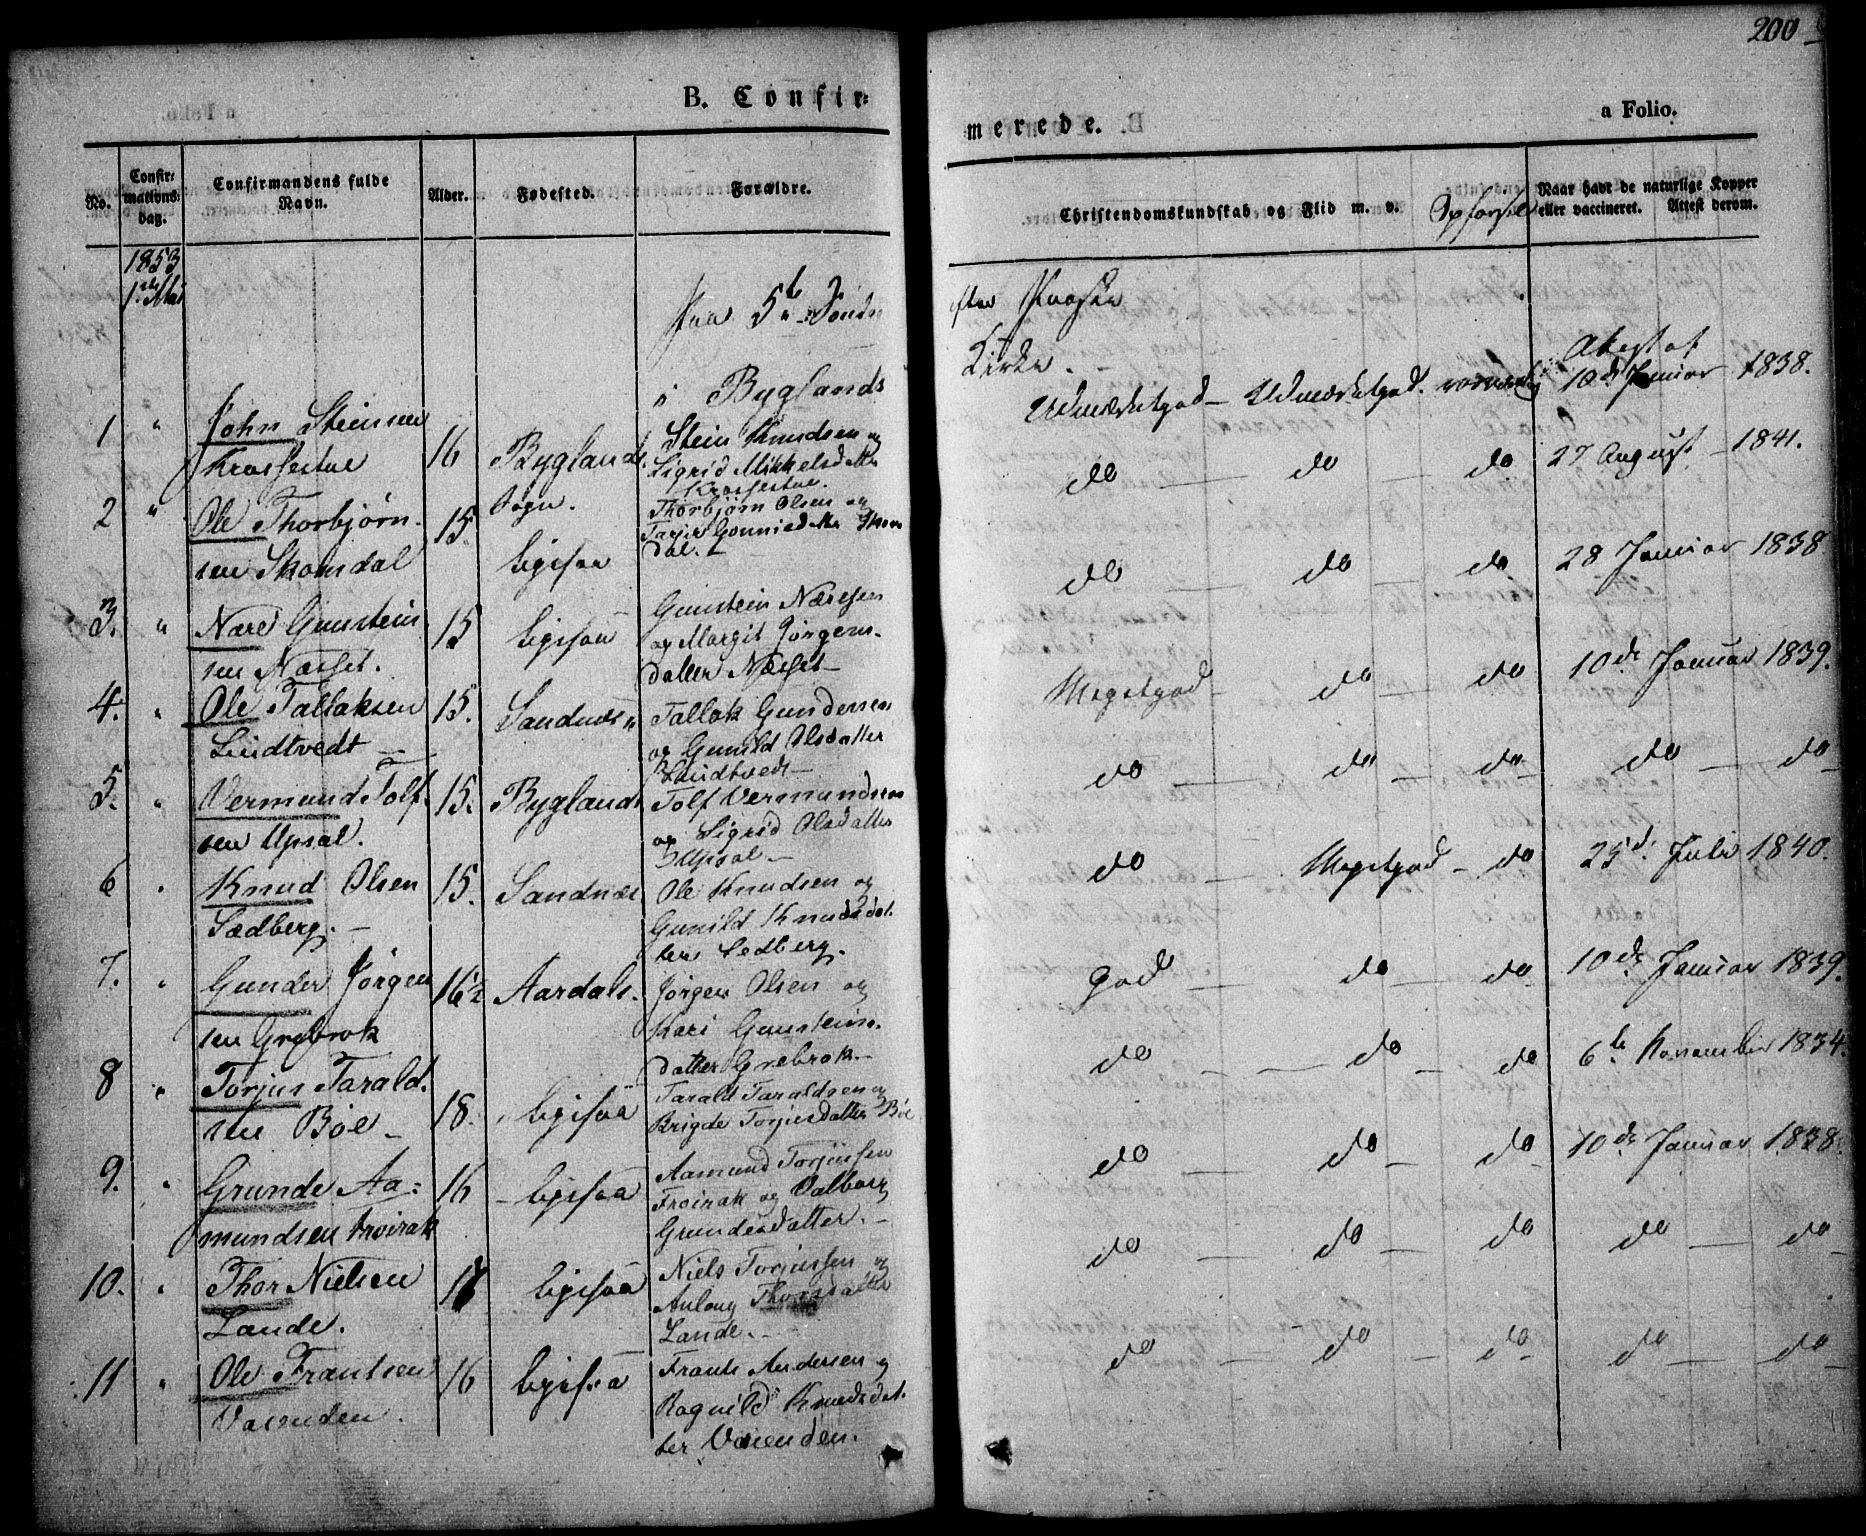 200
B. Confir=
merede.
a Folio.
No.
Confir=
mations=
dag.
Confirmandens fulde
Navn.
Alder.
Fødested.
Forældre.
Christendomskundskab og Flid m. v.
Opførsel
Naar havt de naturlige Kopper
eller vaccineret. Attest derom.
1853
1ste Mai
Paa 5te Sønda
efter Paaske
i Byglands
Kirke.
1 " John Steinsen
Krossestue
16
Byglands
Sogn.
Stein Knudsen og
Sigrid Mikkelsdatter
Krossestue.
Udmærketgod — Udmærketgod.
Attest af
10de Januar 1838.
2 " Ole Thorbjørn-
sen Skomdal
15.
ligesaa
Thorbjørn Olsen og
Tarjer Gunnisdatter Skom
dal.
do — do — do 27 August 1841.
3. " Nære Gunstein
sen Næsset.
15
ligesaa
Gunstein Næresen
og Margit Jørgens-
datter Næsset
do — do — do 28 Januar 1838
4. " Ole Tallaksen
Lindtvedt
15.
Sandnæs
Tallak Gundersen
og Gunild Olsdatter
Lindtvedt
Megetgod — do — do 10de Januar 1839.
5. " Vermund Tolf-
sen Upsal.
15.
Byglands
Tolf Vermundsen
og Sigrid Olsdatter
Upsal
do — do — do — do — do
6 " Knud Olsen
Sædberg.
15.
Sandnæs
Ole Knudsen og
Gunild Knudsdat-
ter Sedberg.
do — Megetgod — do 25d. Juli 1840.
7. " Gunder Jørgen
sen Grebrok
16½
Aardals.
Jørgen Olsen og
Kari Gunsteins-
datter Grebrok
God — do — do 10de Januar 1839.
8 " Torjus Tarald-
sen Bøe
18.
ligesaa
Tarald Taraldsen og
Brigde Torjusdatter Bøe
do — do — do 6te November 1834.
9. " Grunde Aa=
mundsen Frøirak
16
ligesaa
Aamund Torjussen
Frøirak og Valborg
Grundesdatter.
do — do — do 10de Januar 1838.
10. " Thor Nielsen
Lande.
17
ligesaa
Niels Torjussen og
Anlaug Thorsdatter
Lande.
do — do — do — do — do
11 " Ole Frantsen
Vasenden.
16
ligesaa
Frants Andersen og
Ragnild Knudsdat-
ter Vasenden.
do — do — do — do — do